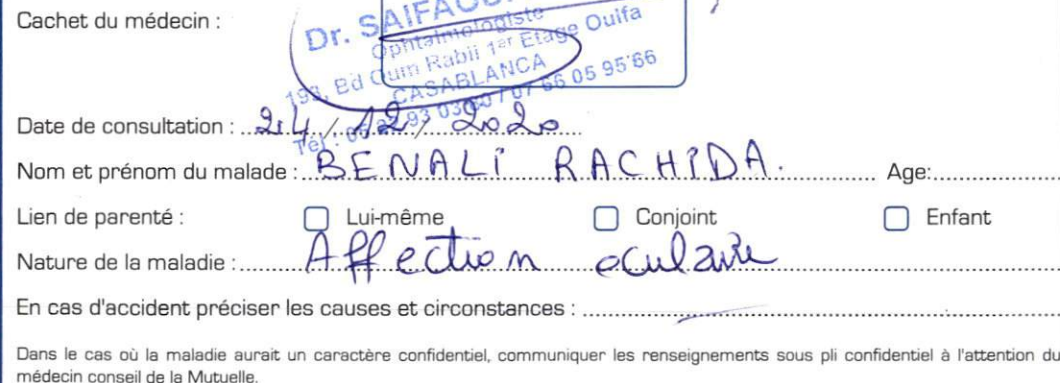 Cachet du médecin :
Dr.
Ophtalmologiste
193, Bd Oum Rabii 1er Etage Oulfa
CASABLANCA
Date de consultation : 24 / 12 / 2020
Nom et prénom du malade : BENALI RACHIDA. Age:
Lien de parenté : Lui-même Conjoint Enfant
Nature de la maladie : Affection oculaire
En cas d'accident préciser les causes et circonstances :
Dans le cas où la maladie aurait un caractère confidentiel, communiquer les renseignements sous pli confidentiel à l'attention du
médecin conseil de la Mutuelle.